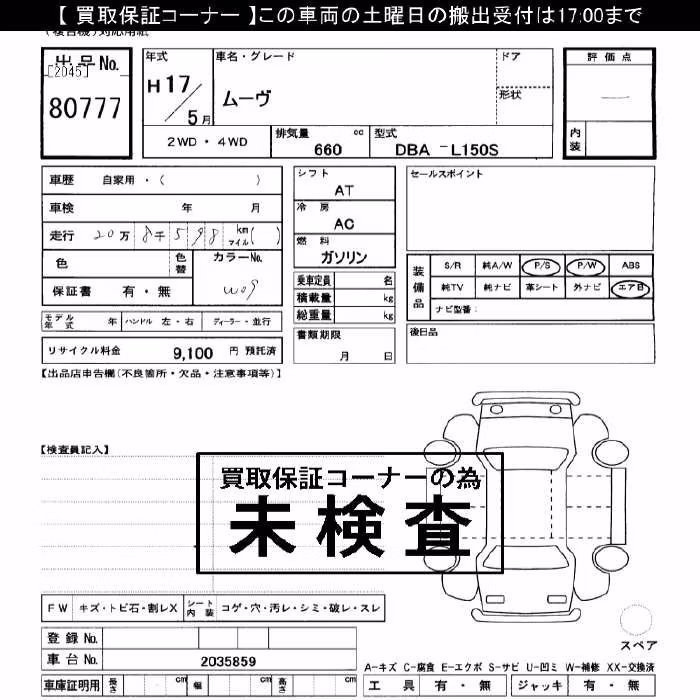 【 買取保証コーナー 】この車両の土曜日の搬出受付は17:00まで
出品No. [2045] 80777
年式 H17/5月
車名・グレード ムーヴ
ドア
形状
評価点 —
内装
2WD・4WD
排気量 cc 660
型式 DBA -L150S
車歴 自家用・( )
車検 年 月
走行 20万 8千598 km マイル( )
色 色替 カラーNo. W09
保証書 有・無
モデル年式 年 ハンドル 左・右 ディーラー・並行
リサイクル料金 9,100 円 預託済
シフト AT
冷房 AC
燃料 ガソリン
乗車定員 名
積載量 kg
総重量 kg
書類期限 月 日
セールスポイント
装備品 S/R 純A/W P/S P/W ABS
純TV 純ナビ 革シート 外ナビ エアB
ナビ型番:
後日品
【出品店申告欄(不良箇所・欠品・注意事項等)】
【検査員記入】
買取保証コーナーの為
未検査
FW キズ・トビ石・割レX シート内装 コゲ・穴・汚レ・シミ・破レ・スレ
登録No.
車台No. 2035859
車庫証明用 長さ cm 幅 cm 高さ cm
スペア
A-キズ C-腐食 E-エクボ S-サビ U-凹ミ W-補修 XX-交換済
工具 有・無 ジャッキ 有・無